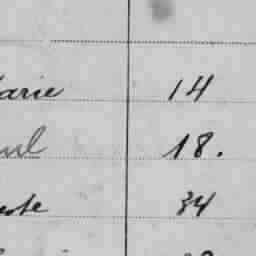 arie 14
ul 18.
ste 34